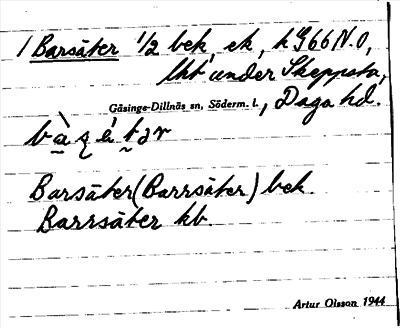 1 Barsäter ½ bek, ek, k 966 N.O,
lht under Skeppsta,
Gåsinge-Dillnäs sn, Söderm. l., Daga hd.
Barsäter (Barrsäter) bek.
Barrsäter kb.
Artur Olsson 1944